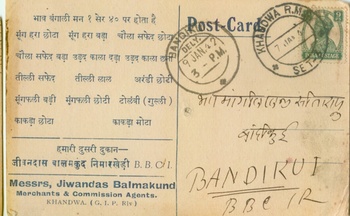 भाव बंगाली मन १ सेर ४० पर होता है
मूंग हरा छोटा मूंग हरा बड़ा चौला सफेद छोटा
चौला सफेद बड़ा उड़द काला छोटा उड़द काला बड़ा
तीली सफेद तीली लाल अरंडी छोटी
मुंगफली बड़ी मुंगफली छोटी टोलंबी (गुल्ली)
काकड़ा छोटा काकड़ा मोटा
हमारी दुसरी दुकान:-
जीवनदास बालमकुंद निमारखेड़ी B. B. C. I.
Messrs, Jiwandas Balmakund
Merchants & Commission Agents.
KHANDWA. (G. I. P. Rly)
Post-Card
BANDIKUI
DELY.
9 JAN 47
3 - P.M.
KHANDWA R.M.S.
7 JAN 4
SET
बांदीकुई
BANDIKUI
BBCIR